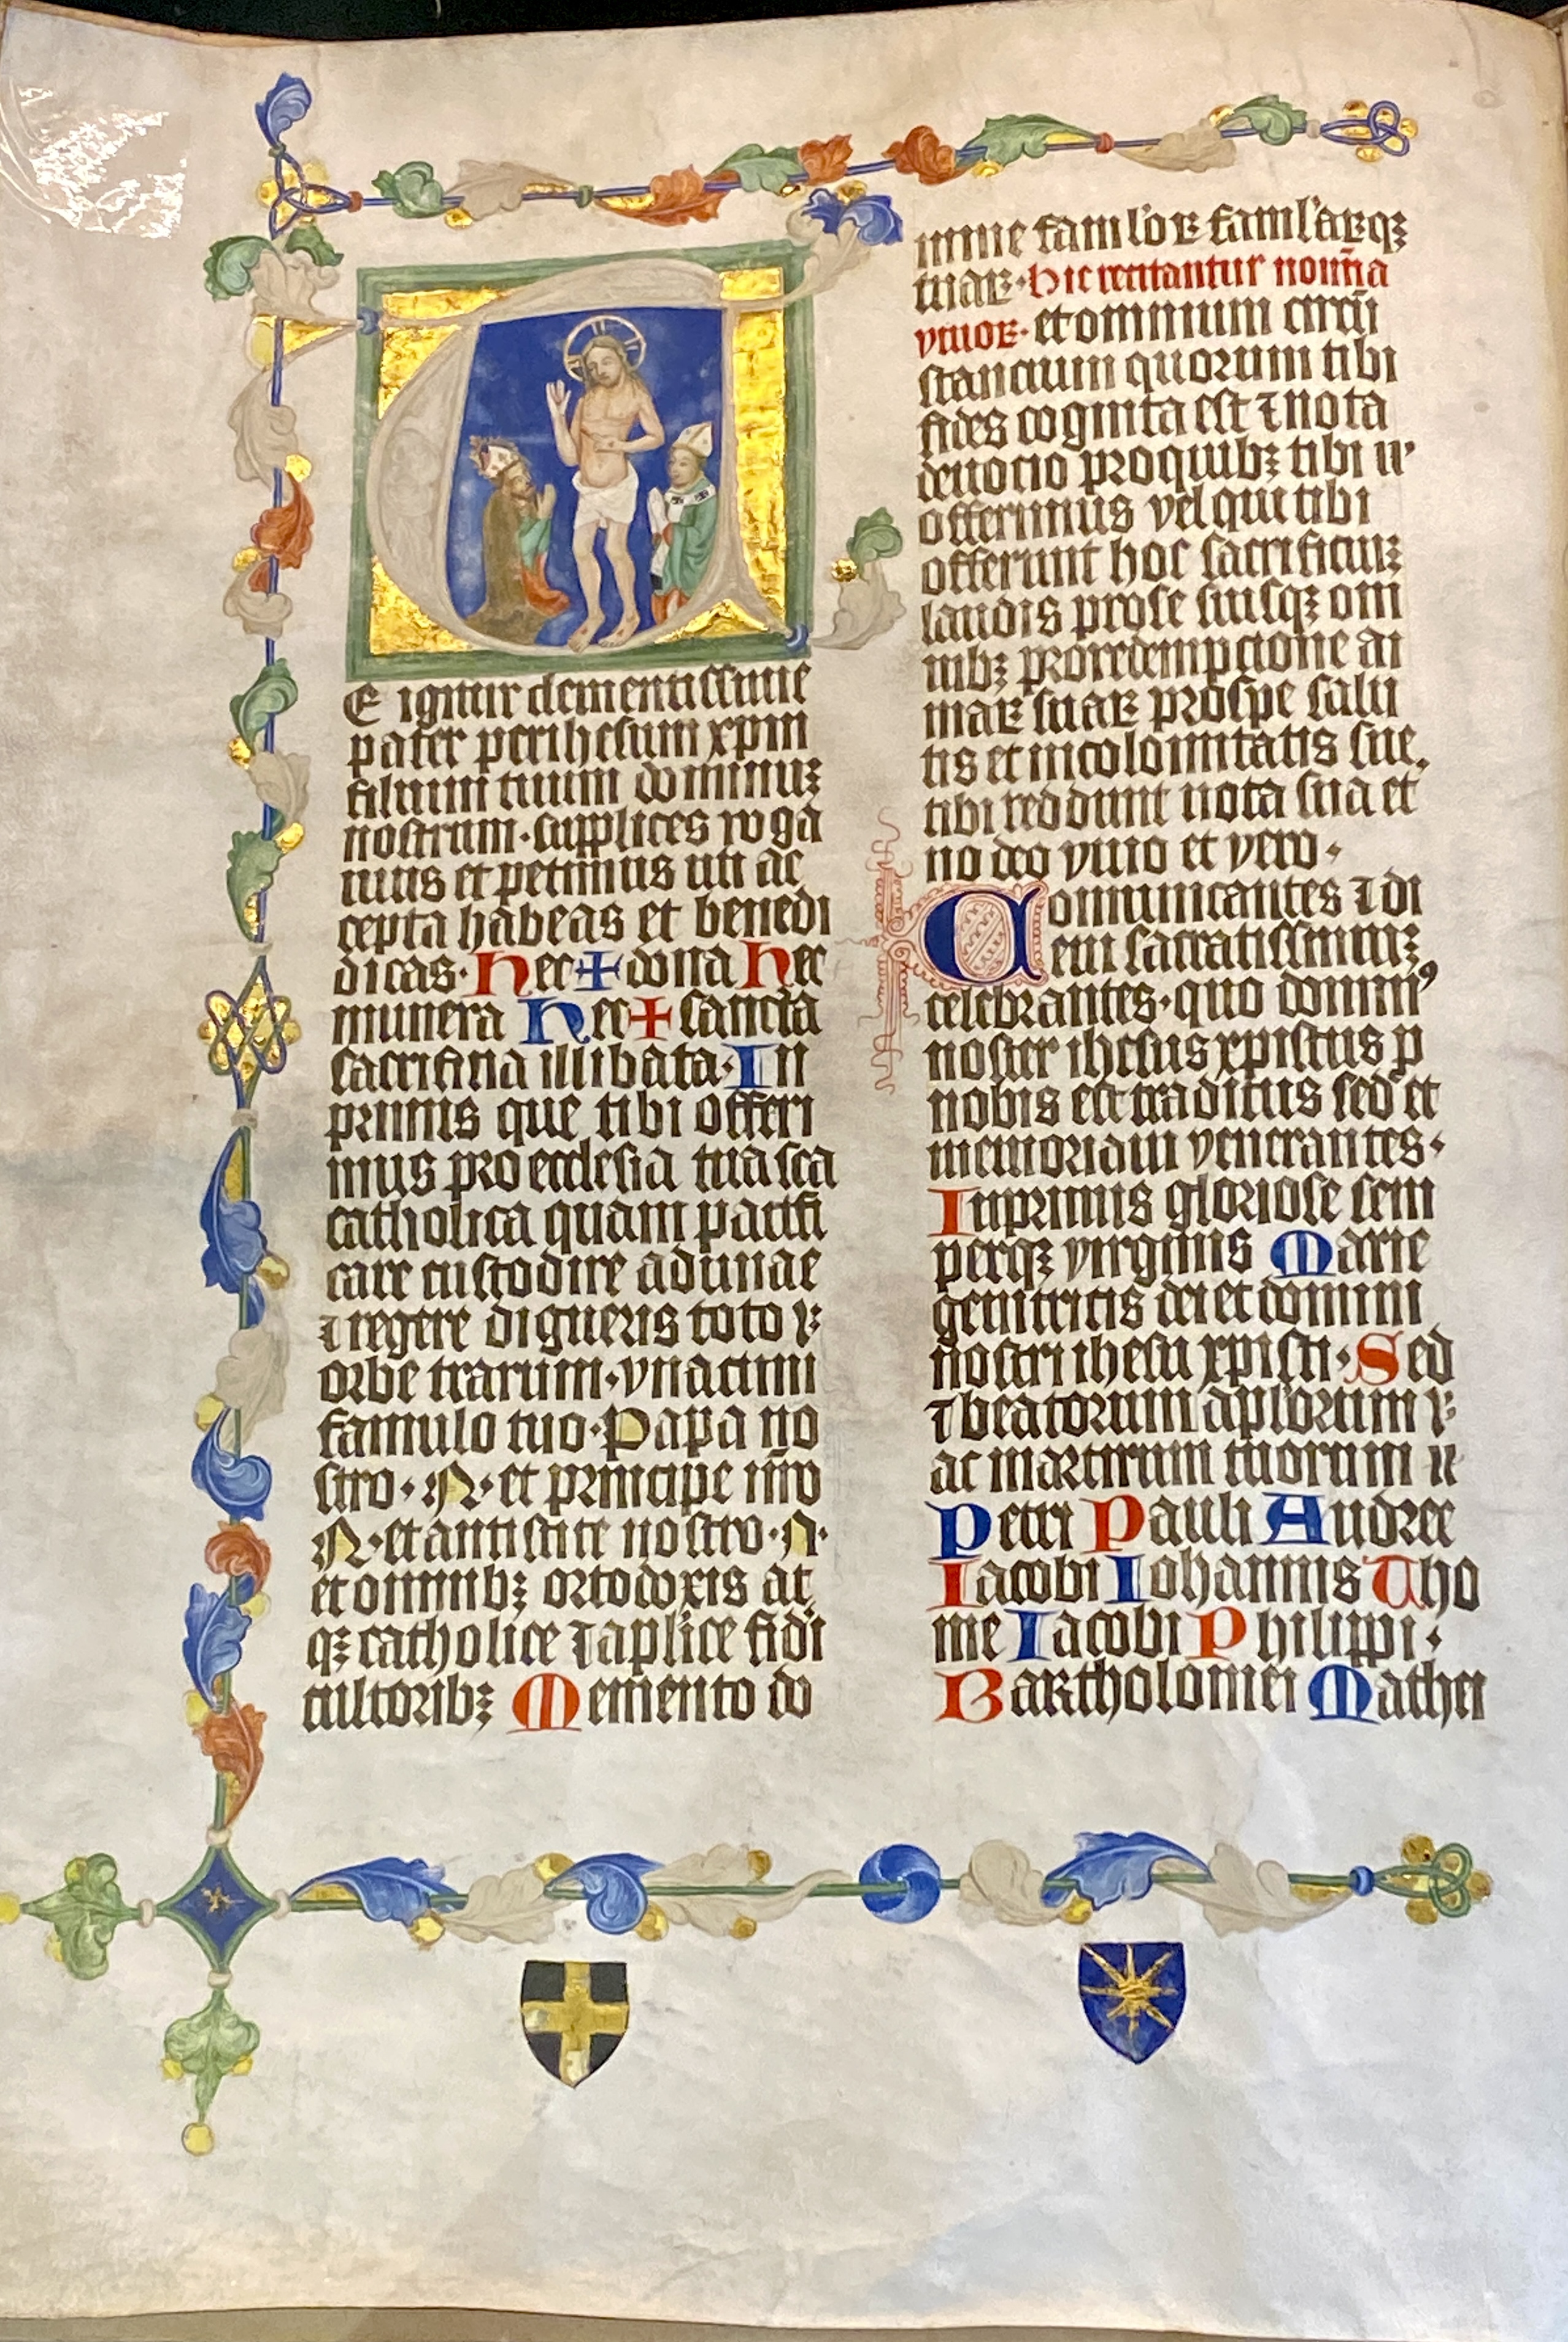 T
E igitur clementissime
pater per ihesum xpm
filium tuum dominuꝫ
nostrum·supplices roga
mus et petimus uti ac
cepta habeas et benedi
dicas·Hec+dona Hec
munera Hec+sancta
sacrificia illibata·In
primis que tibi offeri
mus pro ecclesia tua sca
catholica quam pacifi
care custodire adunae
⁊ regere digneris toto
orbe trarum·vna cum
famulo tuo·Papa no
stro·N·et principe nr̄o
N·et antistite nostro·N·
et omnibꝫ ortodoxis at
qꝫ catholice ⁊ aplice fidi
cultoribꝫ Memento do
mine famlꝛoꝝ famlaꝝqꝫ
tuaꝝ·hic recitantur nomīa
viuoꝝ·et omnium circū
stancium quorum tibi
fides cognita est ⁊ nota
deuocio pro quibꝫ tibi
offerimus vel qui tibi
offerunt hoc sacrificiuꝫ
laudis pro se suisqꝫ om
nibꝫ pro redempcione ai
maꝝ suaꝝ pro spe salu
tis et incolomitatis sue.
tibi reddunt uota sua et
no deo viuo et vero·
Communicantes ⁊ di
em sacratissimuꝫ
celebrantes·quo dominꝰ
noster ihesus xpistus p
nobis est traditus sed et
memoriam venerantes·
Inprimis gloriose sem
perqꝫ virginis Marie
genitricis dei et domini
nostri ihesu xpisti·Sed
⁊ beatorum aplorum
ac martirum tuorum
Petri Pauli Andree
Iacobi Iohannis Tho
me Iacobi Philippi·
Bartholomei Mathei